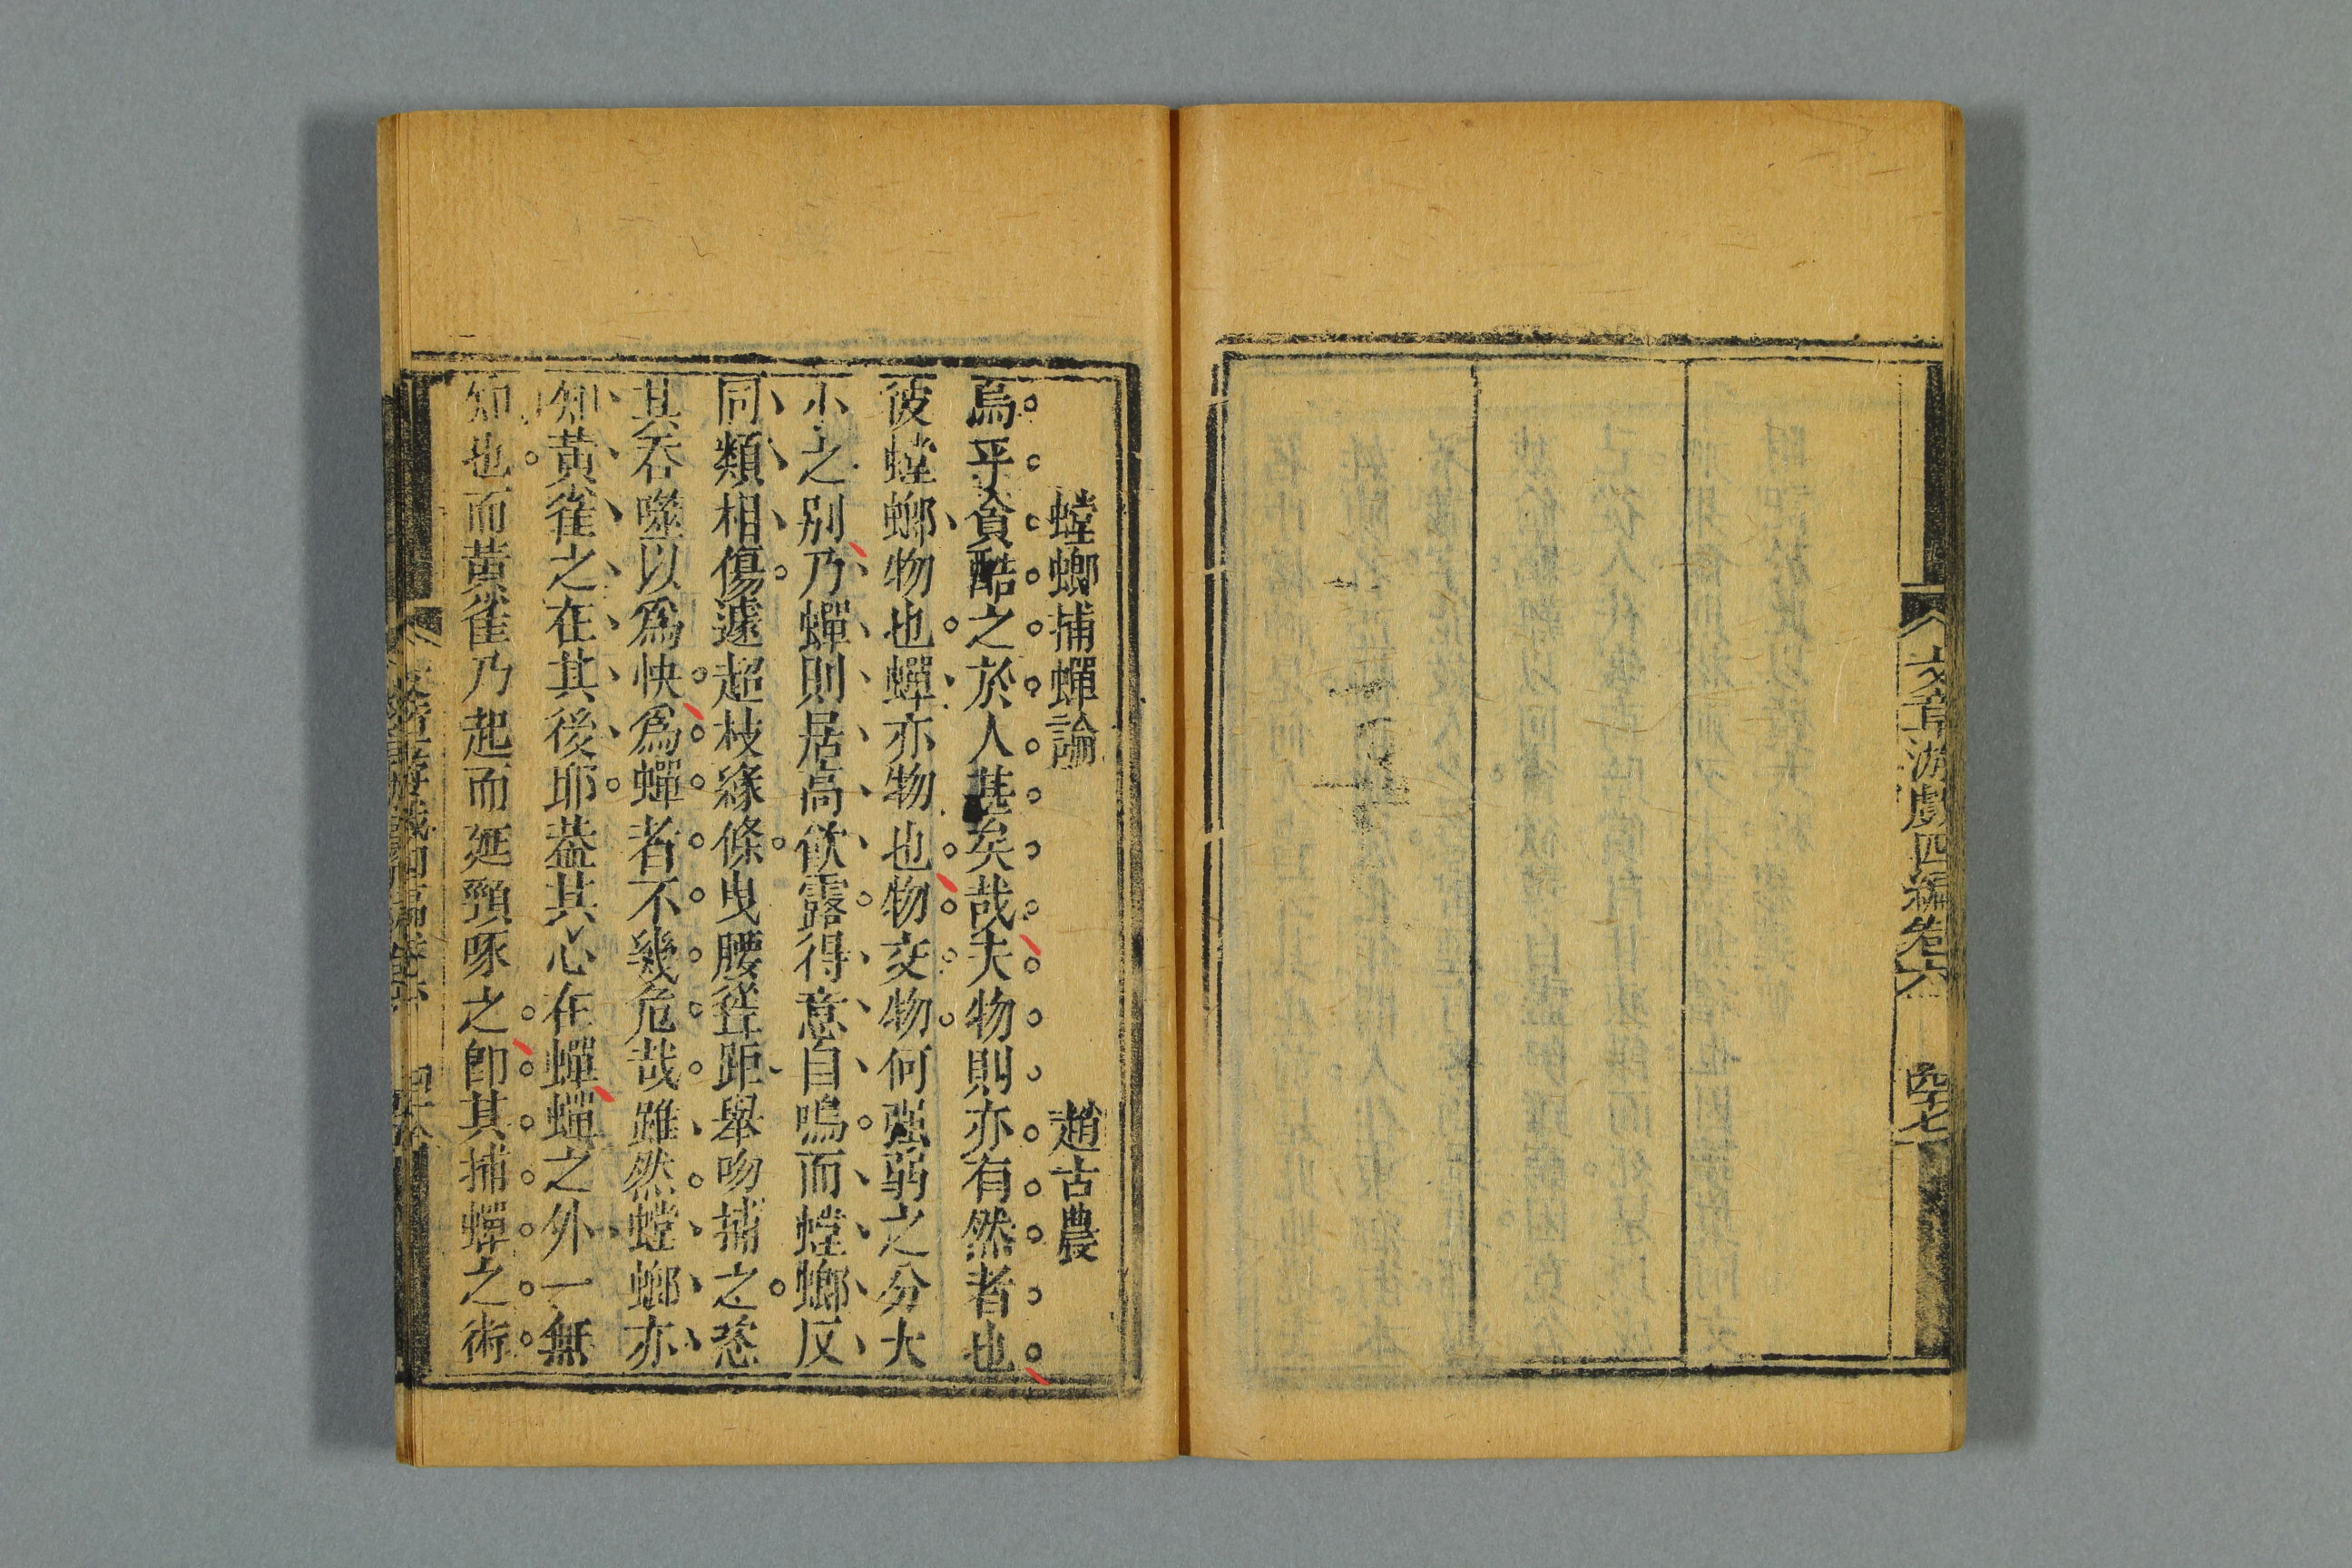 文章游戲四編卷六
四十七
螳螂捕蟬論
趙古農
烏乎貪酷之於人甚矣哉夫物則亦有然者也
彼螳螂物也蟬亦物也物交物何强弱之分大
小之别乃蟬則居高飲露得意自鳴而螳螂反
同類相傷遽超枝緣條曳腰聳距舉吻捕之恣
其吞噬以爲快爲蟬者不幾危哉雖然螳螂亦
知黃雀之在其後耶葢其心在蟬蟬之外一無
知也而黃雀乃起而延頸啄之卽其捕蟬之術